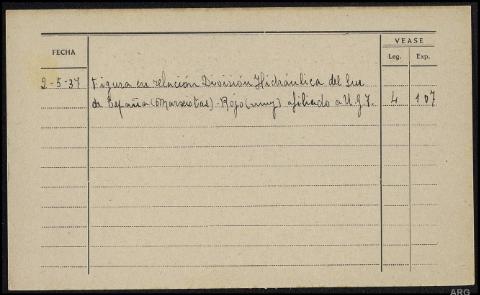 VEASE
FECHA
Leg. Exp.
2-5-37 Figura en relación División Hidráulica del Sur
de España (Marxistas)-Rojo (muy) afiliado a U.G.T. 4 107
ARG